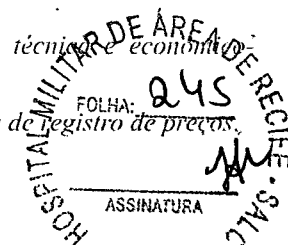 técnica e econômico-
de registro de preços.
HOSPITAL MILITAR DE ÁREA DE RECIFE - SALC
FOLHA: 245
ASSINATURA